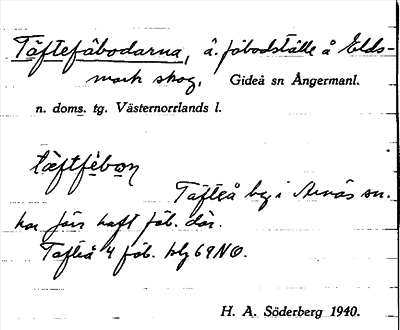 Täftefäbodarna, ä. fäbodställe å Elds-
mark skog, Gideå sn Ångermanl.
n. doms. tg. Västernorrlands l.
tæ̀ftfèbo̱n
Täfteå by i Arnäs sn.
har förr haft fäb. där.
Tafteå 4 fäb. blg 69 NO.
H. A. Söderberg 1940.